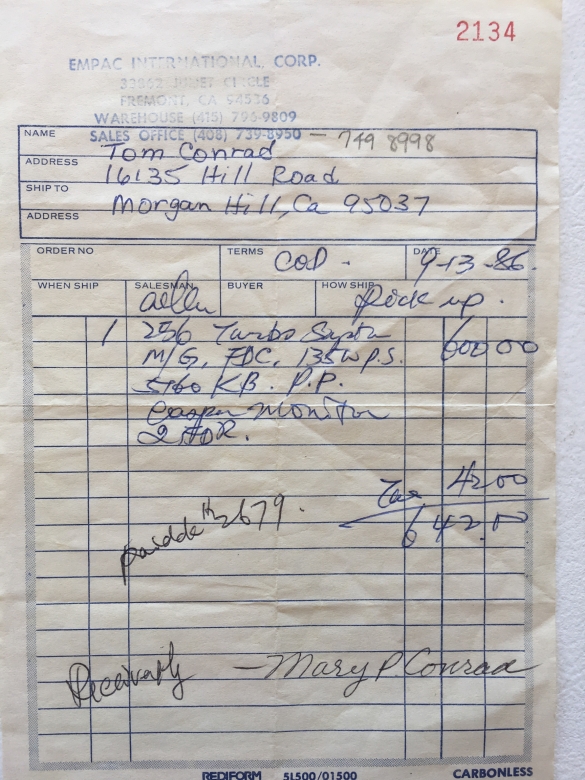 2134
EMPAC INTERNATIONAL, CORP.
33962 JULIET CIRCLE
FREMONT, CA 94536
WAREHOUSE (415) 796-9809
SALES OFFICE (408) 739-8950 — 749 8998
NAME Tom Conrad
ADDRESS 16135 Hill Road
SHIP TO Morgan Hill, Ca 95037
ADDRESS
ORDER NO TERMS COD - DATE 9-13-86.
WHEN SHIP SALESMAN BUYER HOW SHIP Pick up.
1 256 Turbo System 600 00
M/G, FDC, 135W P.S.
5160 KB. P.P.
Casper Monitor
2 FDR.
Tax 42.00
642.00
#2679.
— Mary P. Conrad
REDIFORM 5L500/01500 CARBONLESS